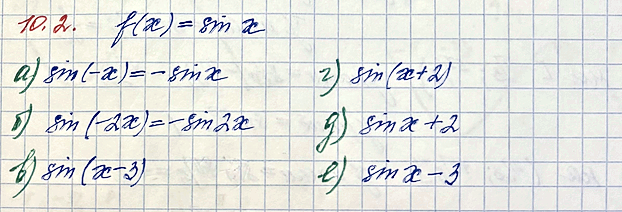 10.2. f(x) = sin x
а) sin(-x) = -sin x г) sin(x+2)
б) sin(-2x) = -sin 2x д) sin x + 2
в) sin(x-3) е) sin x - 3